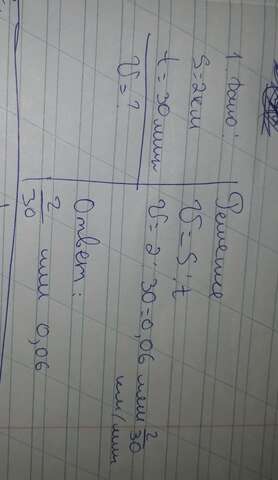 1. Дано:
S = 2км
t = 30 мин
V = ?
Решение
V = S : t
V = 2 : 30 = 0,06 или 2/30 км/мин
Ответ:
2/30 или 0,06